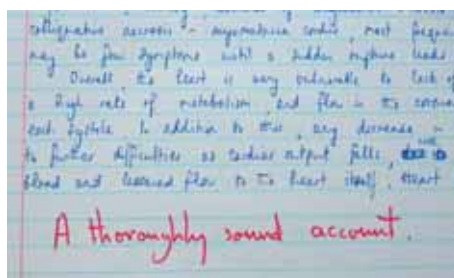 colliquative necrosis - myomalacia cordis, most freque
may be few symptoms until a sudden rupture leads
Overall the heart is very vulnerable to lack of
a high rate of metabolism, and flow in the corona
each systole. In addition to this, any decrease in
to further difficulties as cardiac output falls,
blood and lessened flow to the heart itself. Heart
A thoroughly sound account.